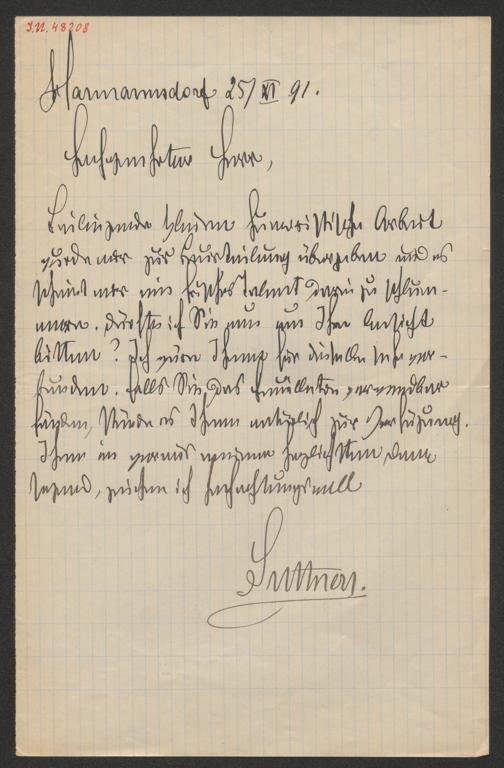 I.N. 48208
Harmannsdorf 25/XI 91.
Hochgeehrter Herr,
Beiliegende kleine humoristische Arbeit
wurde mir zur Beurteilung übergeben und es
scheint mir ein hübsches Talent darin zu schlum-
mern. Dürfte ich Sie nun um Ihre Ansicht
bitten? Ich wäre Ihnen für dieselbe sehr ver-
bunden. Falls Sie das Feuilleton verwendbar
fänden, stünde es Ihnen natürlich zur Verfügung.
Ihnen im voraus meinen herzlichsten Dank
sagend, zeichne ich hochachtungsvoll
Suttner.